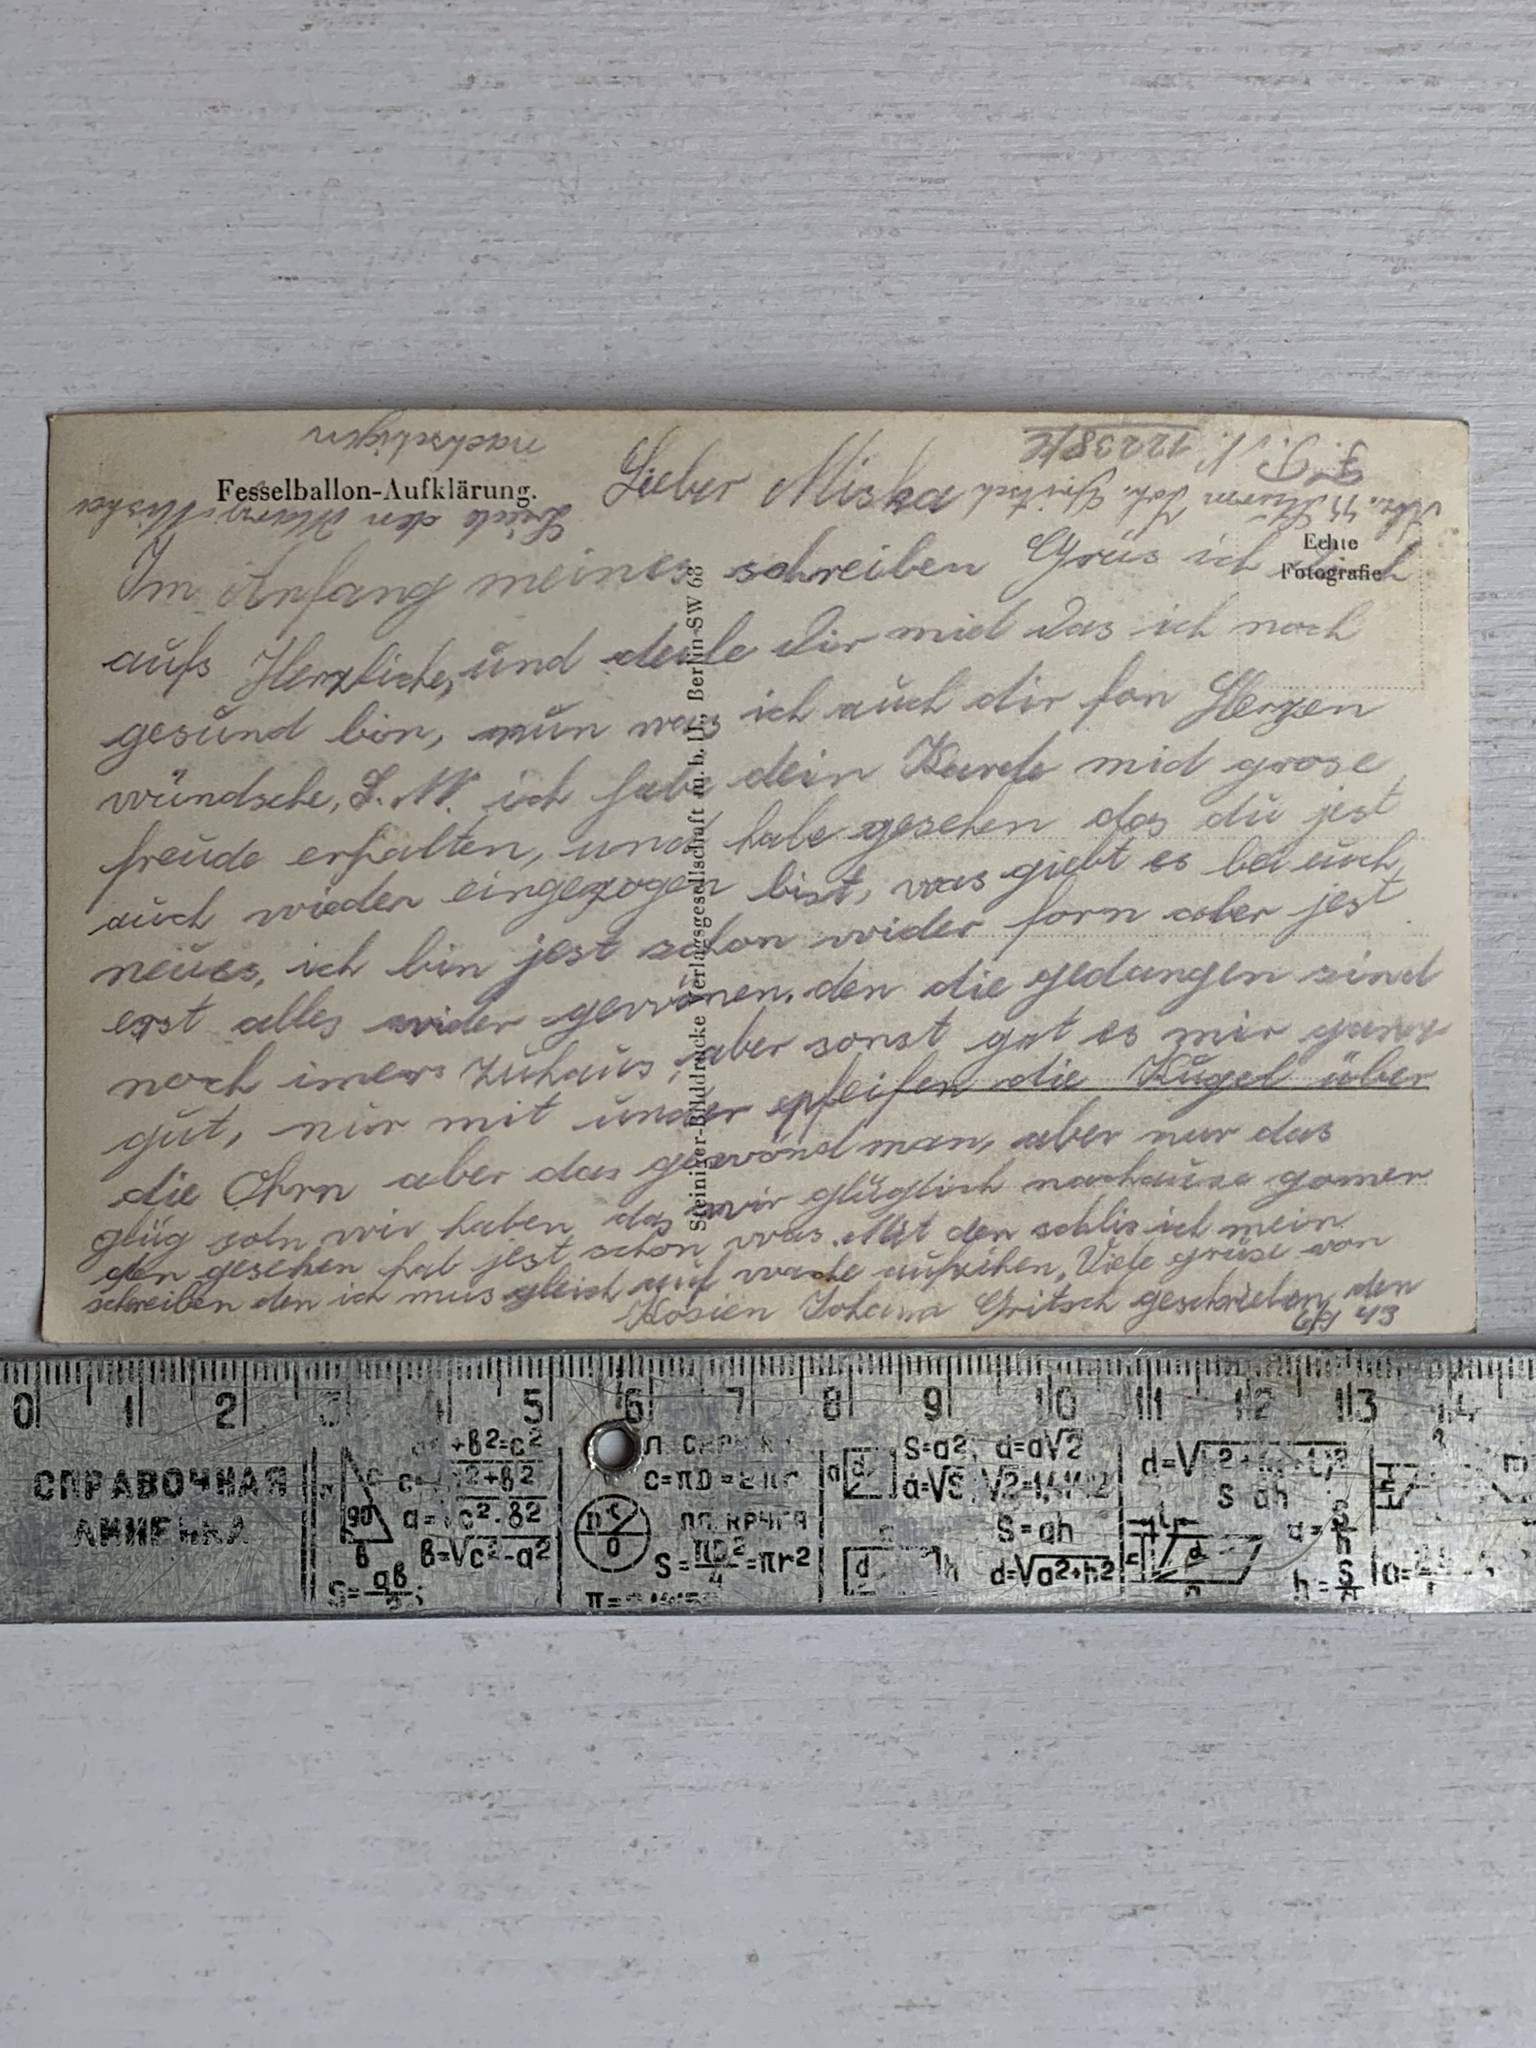 Fesselballon-Aufklärung.
Echte
Fotografie
Steiniger-Bilddrucke Verlagsgesellschaft m. b. H., Berlin SW 68
nachseligen
Miska
F. P. N. 12238/E
Joh. Gritsch
Lieber Miska
Im Anfang meines schreiben Grüs ich Dich
aufs Herzliche, und deule Dir mid das ich noch
gesund bin, nun was ich auch dir fon Herzen
wündsche, L. M. ich habe dein Karde mid grose
freude erhalten, und habe gesehen das du jest
auch wieder eingezogen bist, was giebt es bei euch
neues, ich bin jest schon wider forn aber jest
erst alles wider gewönen. den die gedangen sind
noch imer Zuhaus, aber sonst gät es mir ganz
gut, nur mit under pfeifen die Kugel über
die Ohrn aber das gewönd man, aber nur das
glüg soln wir haben das wir glüglich nachause gomer
den gesehen hab jest schon was. Mit den schlis ich mein
schreiben den ich mus gleich auf wache aufzihen, Viele grüse von
Johann Gritsch geschrieben den
43
СПРАВОЧНАЯ
ЛИНЕЙКА
0 1 2 3 4 5 6 7 8 9 10 11 12 13 14
c=πD=2πr
S=πD²/4=πr²
S=a², d=a√2
S=ah
d=√a²+h²